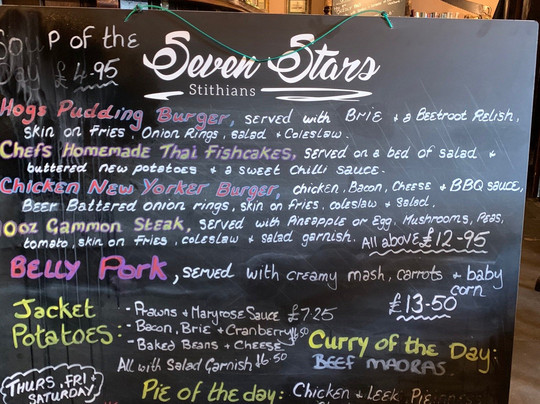 Soup of the
Day £4.95
Seven Stars
Stithians
Hogs Pudding Burger, served with Brie + a Beetroot Relish,
skin on fries, Onion Rings, salad + Coleslaw.
Chefs Homemade Thai Fishcakes, served on a bed of salad +
buttered new potatoes + a sweet chilli sauce.
Chicken New Yorker Burger, chicken, Bacon, Cheese + BBQ sauce,
Beer Battered onion rings, skin on fries, coleslaw + Salad.
10oz Gammon Steak, served with Pineapple or Egg, Mushrooms, Peas,
tomato, skin on fries, coleslaw + salad garnish. All above £12-95
Belly Pork, served with creamy mash, carrots + baby
corn
£13-50
Jacket
Potatoes:
- Prawns + Maryrose Sauce £7.25
- Bacon, Brie + Cranberry £6.50
- Baked Beans + Cheese
All with Salad Garnish £6.50
Curry of the Day:
BEEF MADRAS.
THURS, FRI +
SATURDAY
Pie of the day: Chicken + Leek Pie